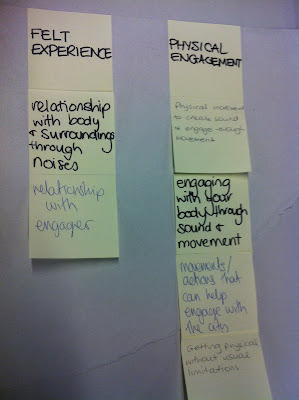 FELT
EXPERIENCE
relationship
with body
& surroundings
through
noises
relationship
with
engager
PHYSICAL
ENGAGEMENT
Physical movement
to create sound
& engage through
movement
engaging
with your
body through
sound &
movement
movements/
actions that
can help
engage with
the city
Getting physical
without usual
limitations